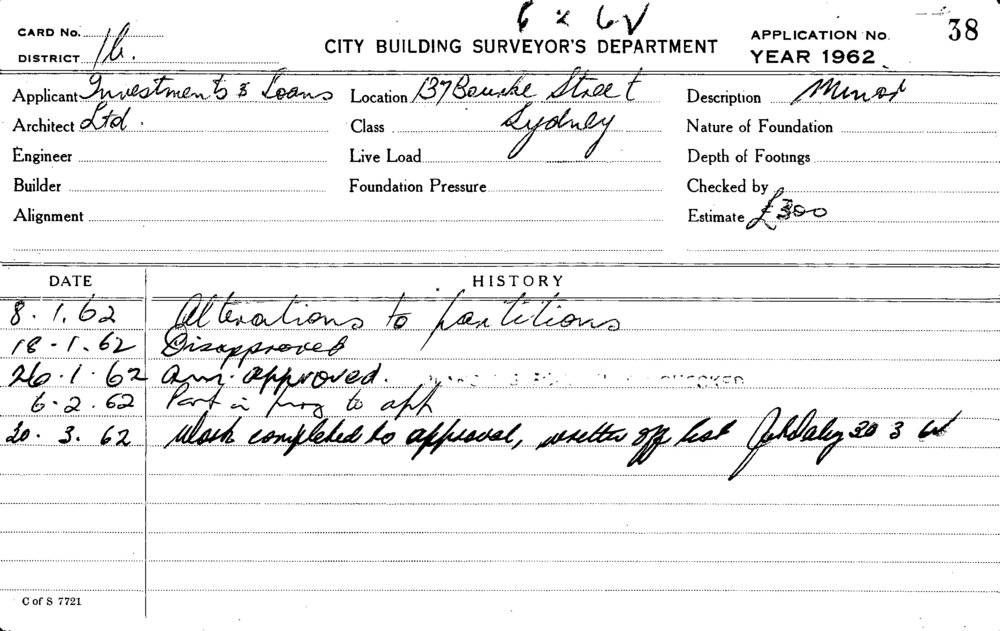 CARD No.
6 2 6
CITY BUILDING SURVEYOR'S DEPARTMENT
APPLICATION No. 38
DISTRICT
YEAR 1962
Applicant Investments & Loans
Architect Ltd.
Engineer
Builder
Alignment
Location 137 Bourke Street
Class Sydney
Live Load
Foundation Pressure
Description Minor
Nature of Foundation
Depth of Footings
Checked by
Estimate £300
DATE HISTORY
8.1.62 Alterations to partitions
18-1.62 Disapproved
26.1.62 am. approved. CHECKED
6.2.62 Part in prog to app
20.3.62 Work completed to approval, written off list 20 3
C of S 7721